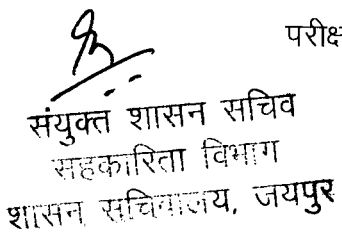 परीक्ष
संयुक्त शासन सचिव
सहकारिता विभाग
शासन सचिवालय, जयपुर